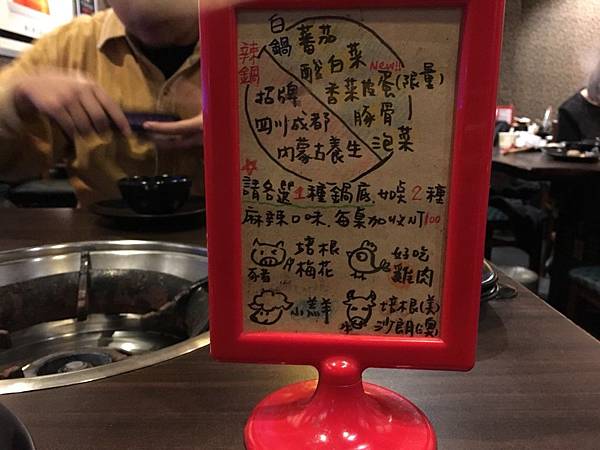 白鍋
蕃茄
酸白菜
New!!
香菜皮蛋(限量)
豚骨
泡菜
辣鍋
招牌
四川成都
內蒙古養生
請各選1種鍋底.如點2種
麻辣口味.每桌加收NT100
豬
培根
梅花
好吃
雞肉
小羔羊
牛
培根(美)
沙朗(澳)